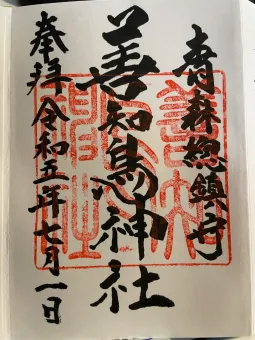 青森總鎮守
善知鳥神社
奉拝令和五年七月一日